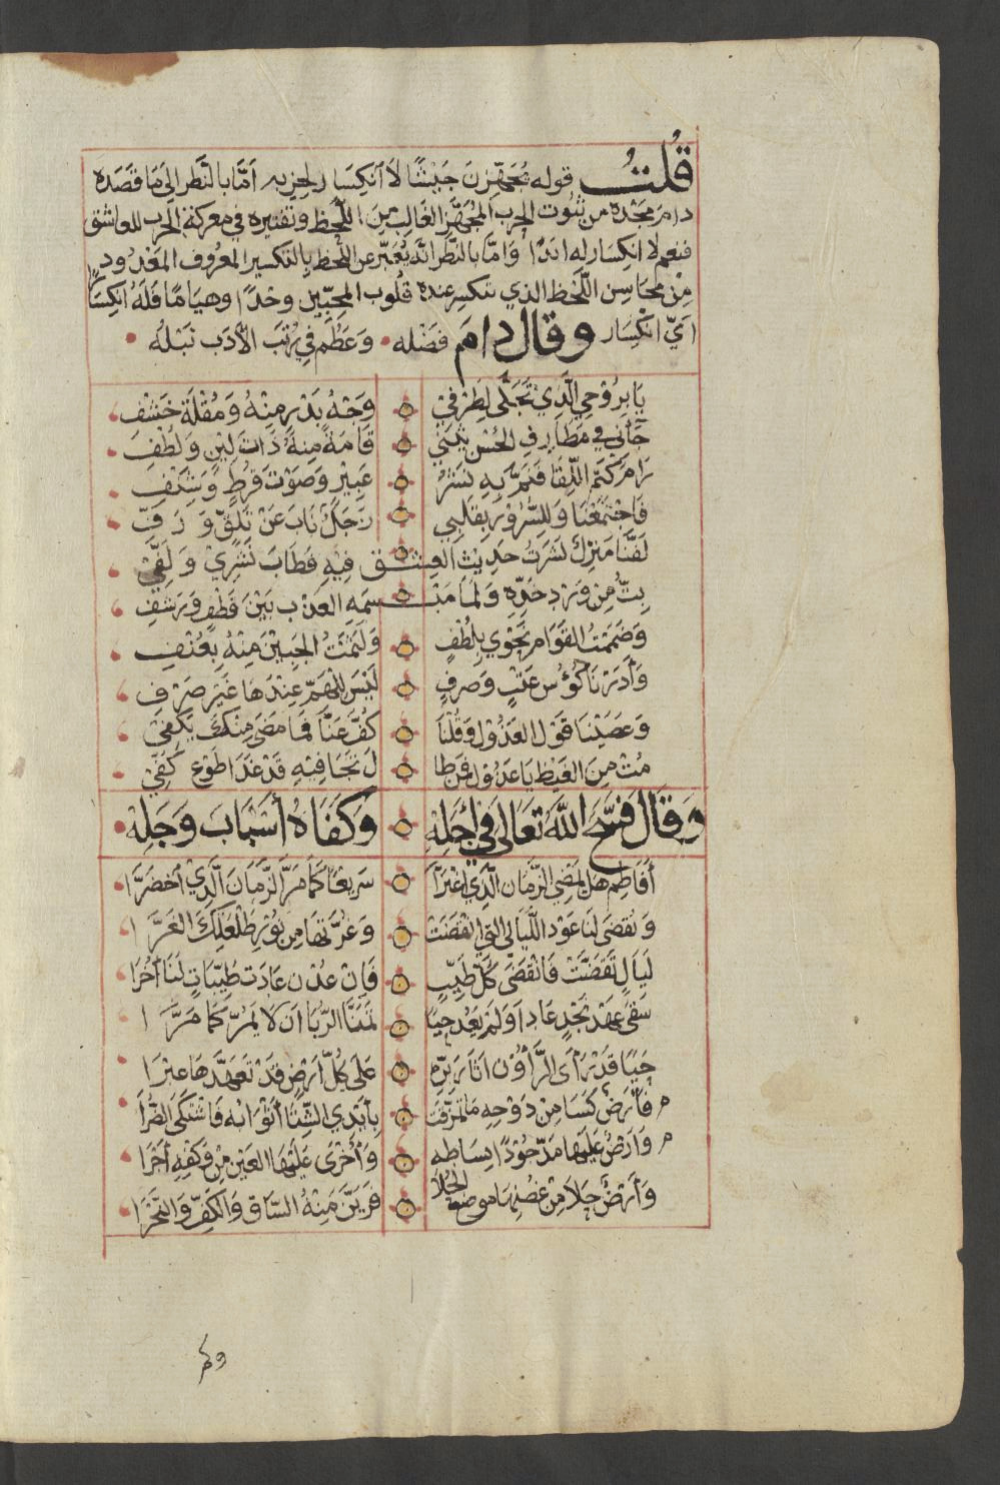 قُلْتُ قوله تُجَهِّزْنَ جَيْشًا لاَ انْكِسَارَ لِحِزبِه أمَّا بالنَّظر إلى مَا قصَدَه
دامَ مَجْدُه من ثبُوت الحرب المُجَهَّز الغَالِب مِنَ اللَّحْظ وتفتيره في معركة الحرب للعاشق
فنعم لا انكسار له ابَدًا وَامَّا بالنَّظر انَّه يُعَبّر عن اللَّحظ بِالتكسير المعرُوف المعْدُود
مِنْ محَاسِن اللَّحْظ الذي تنكسِر عندهُ قلُوب المحِبّين وجْدًا وهيَامًا فَلَهُ انْكِسَارٌ
أيّ انْكِسَار وقَال دامَ فَضْله وَعَظُم في رُتَب الأدَب نُبْلُهُ
يَا بِرُوْحِي الَّذِي تَجَلَّى لِطَرْفيْ وَجْهُ بَدْرٍ مِنْهُ وَمُقْلَة خَشْف
جَآنِي في مَطَارِفِ الحُسْن يَثْنِيْ قَامَةً مِنهُ ذَاتَ لِيْنٍ وَلُطْفِ
رَامَ كَتْمَ اللِّقَا فَنَمَّ بِهِ نَشْرُ عَبِيْرٍ وَصَوْت قُرْطٍ وَشَنْفِ
فَاجْتَمَعْنَا وَلِلسُّرُوْر بِقَلْبِي زَجَلٌ نَابَ عَنْ تَلَقٍّ وَزَفِّ
لَفَّنَا مَنزِلٌ نَشَرتُ حَدِيْث العِشْق فِيْهِ فَطَابَ نَشْرِيْ وَلَفِّيْ
بِتُّ مِنْ وَرْدِ خَدِّهِ وَلَمَا مَبْسَمِهِ العَذْب بَيْنَ قَطْفٍ وَرَشْفِ
وَضَمَمْتُ القَوَامَ نَحْوِي بِلُطْفٍ وَلَثَمْتُ الجَبِيْنَ مِنْهُ بِعُنْفِ
وَأَدَرْنَا كُؤُسَ عَتْبٍ وَصِرفٍ لَيْسَ لِلْهَمِّ عِنْدَهَا غَيْرَ صَرْفِ
وَعَصَيْنَا قَوْلَ العَذُوْلِ وَقُلْنَا كُفَّ عَنَّا فَمَا مَضَى مِنْكَ يَكْفِيْ
مُتْ مِنَ الغَيْظِ يَا عَذُوْل فَرطَا لَ تَجَافِيْهِ قَدْ غَدَا طَوْعَ كَفِّيْ
وَقَالَ فَسَّحَ اللّهُ تَعَالى في أَجَلِهِ وَكَفَاهُ أسْبَابَ وَجَلِهِ
أَفَاطِمَ هَلْ يَمْضِي الزَّمَان الَّذِي اغْبَرَّا سَرِيْعًا كَمَا مَرَّ الزَّمَانُ الَّذِيْ اخضَرَّا
وَتُقضَى لنَا عَوْد اللَّيَالِي الَّتي انْقَضَتْ وَغُرَّتهَا مِن نُوْرِ طَلْعَتِكِ الغَرَّا
لَيَالٍ تَقَضَّتْ فَانْقَضَى كُلّ طَيِّبٍ فَإنْ عُدْنَ عَادَتْ طَيِّبَاتٍ لَنَا أُخْرَا
سَقَى عَهْدَ نَجْدٍ عَادَ اوَ لَمْ يَعُدْ حَيًا تَمَنَّا الرُّبَا ان لاَ يَمُرّ كَمَا مَرَّا
حَيًا قَدْ رَأَى الرَّأؤُن اثَارَ بِرِّهِ عَلَى كُلّ أرْضٍ قَدْ تَعَهَّدهَا عبْرَا
فَأرْضٌ كَسَا مِنْ دَوْحِهِ مَا تمزّقتْ بِأيْدِي الشِّتَا أثْوَابُه فَاشْتَكَى الضُّرَّا
وَارْضٌ عَلَيْهَا مَدَّ جُوْدًا بِسَاطِه وَأُخْرَى عَلَيْهَا العَيْن مِنْ وَكفِهِ أَجْرَا
وَأرْضٌ جَلاَ مِنْ غصْنِهَا موضع الحُلاَ فَزيَّنَ مِنْهُ السَّاق وَالكَفّ وَالنّحْرَا